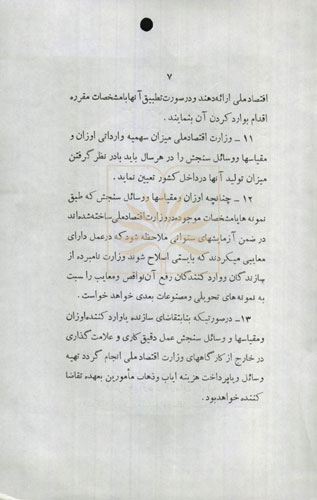 ۷
اقتصاد ملی ارائه دهند و در صورت تطبیق آنها با مشخصات مقرره
اقدام بوارد کردن آن بنمایند .
۱۱ – وزارت اقتصاد ملی میزان سهمیه وارداتی اوزان و
مقیاسها و وسائل سنجش را در هر سال باید با در نظر گرفتن
میزان تولید آنها در داخل کشور تعیین نماید .
۱۲ – چنانچه اوزان و مقیاسها و وسائل سنجش که طبق
نمونه ها با مشخصات موجوده در وزارت اقتصاد ملی ساخته شده اند
در ضمن آزمایشهای سنواتی ملاحظه شود که در عمل دارای
معایبی میگردند که بایستی اصلاح شوند وزارت نامبرده از
سازندگان و وارد کنندگان رفع آن نواقص و معایب را نسبت
به نمونه های تحویلی و مصنوعات بعدی خواهد خواست .
۱۳– در صورتیکه بنا بتقاضای سازنده یا وارد کننده اوزان
و مقیاسها و وسائل سنجش عمل دقیق کاری و علامت گذاری
در خارج از کارگاههای وزارت اقتصاد ملی انجام گردد تهیه
وسائل و یا پرداخت هزینه ایاب و ذهاب مأمورین بعهده تقاضا
کننده خواهد بود .